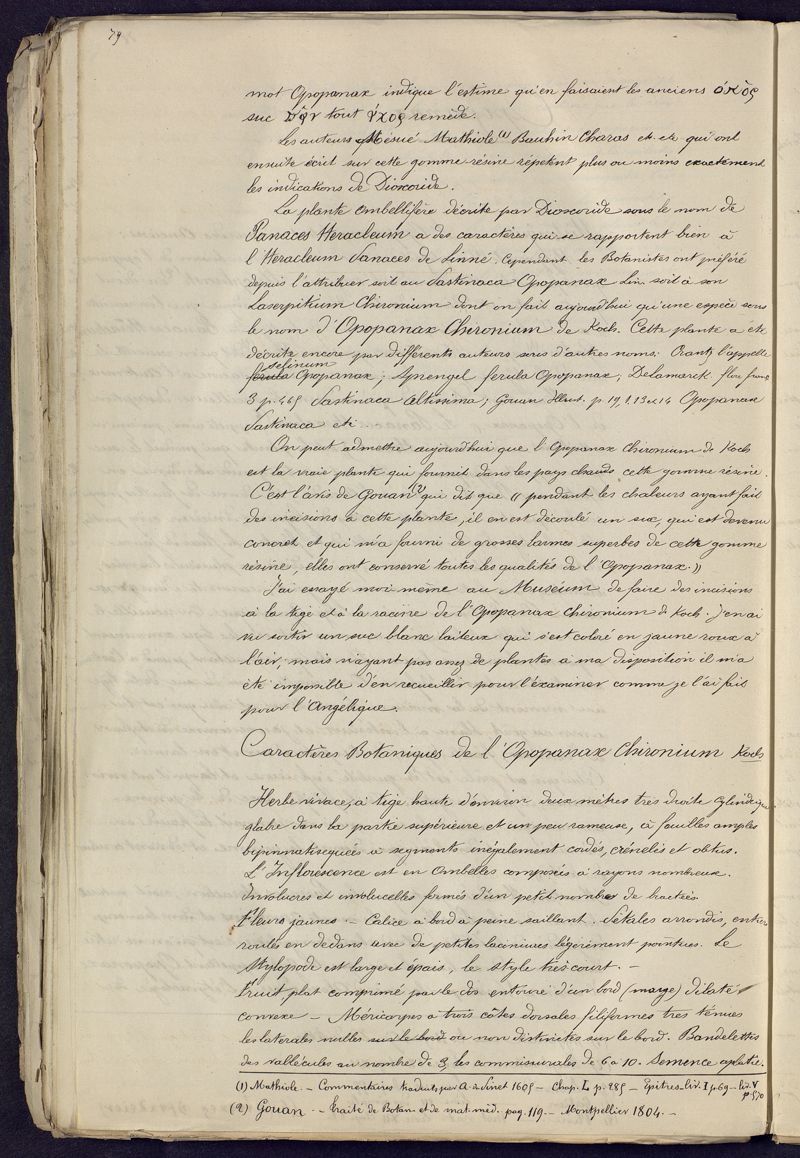 79
mot Opopanax indique l'estime qu'en faisaient les anciens ὀπὸς
suc πᾶν tout ἄκος remède.
Les auteurs Mésué Mathiole (1) Bauhin Charas etc. etc. qui ont
ensuite écrit sur cette gomme-résine répètent plus ou moins exactement
les indications de Dioscoride.
La plante ombellifère décrite par Dioscoride sous le nom de
Panaces Heracleum a des caractères qui se rapportent bien à
l'Heracleum Panaces de Linné. Cependant les Botanistes ont préféré
depuis l'attribuer soit au Pastinaca Opopanax Lin. soit à son
Laserpitium Chironium dont on fait aujourd'hui qu'une espèce sous
le nom d'Opopanax Chironium de Koch. Cette plante a été
décrite encore par différents auteurs sous d'autres noms. Crantz l'appelle
selinum
ferula Opopanax; Sprengel ferula Opopanax; Delamarck flore franc
3 p. 465 Pastinaca altissima; Gouan Illust. p. 19, t. 13 et 14 Opopanax
Pastinaca etc..
On peut admettre aujourd'hui que l'Opopanax Chironium de Koch
est la vraie plante qui fournit dans les pays chauds cette gomme résine.
C'est l'avis de Gouan (2) qui dit que « pendant les chaleurs ayant fait
des incisions à cette plante, il en est découlé un suc, qui est devenu
concret et qui m'a fourni de grosses larmes superbes de cette gomme
résine, elles ont conservé toutes les qualités de l'Opopanax. »
J'ai essayé moi-même au Muséum de faire des incisions
à la tige et à la racine de l'Opopanax Chironium de Koch. J'en ai
vu sortir un suc blanc laiteux qui s'est coloré en jaune roux à
l'air, mais n'ayant pas assez de plantes à ma disposition il m'a
été impossible d'en recueillir pour l'examiner comme je l'ai fait
pour l'Angélique.
Caractères Botaniques de l'Opopanax Chironium Koch
Herbe vivace, à tige haute d'environ deux mètres très droite cylindrique
glabre dans la partie supérieure et un peu rameuse, à feuilles amples
bipinnatiséquées à segments inégalement cordés, crénelés et obtus.
L'Inflorescence est en Ombelles composés à rayons nombreux.
Involucres et involucelles formés d'un petit nombre de bractées.
Fleurs jaunes. — Calice à bord à peine saillant. Pétales arrondis, entiers
roulés en dedans avec de petites lacinures légèrement pointues. Le
Stylopode est large et épais, le style très court. —
Fruit plat comprimé par le dos entouré d'un bord (marge) dilaté
convexe — Méricarpes à trois côtes dorsales filiformes très ténues
les latérales nulles sur le bord ou non distinctes sur le bord. Bandelettes
des vallécules au nombre de 3, les commissurales de 6 à 10. Semence aplatie.
(1) Mathiole. — Commentaires traduits par A. du Pinet 1605 — Chap. L p. 285 — Epitres-liv. I p 69 — liv. V
p 570
(2) Gouan. — Traité de Botan. et de mat. méd. pag. 119. — Montpellier 1804. —